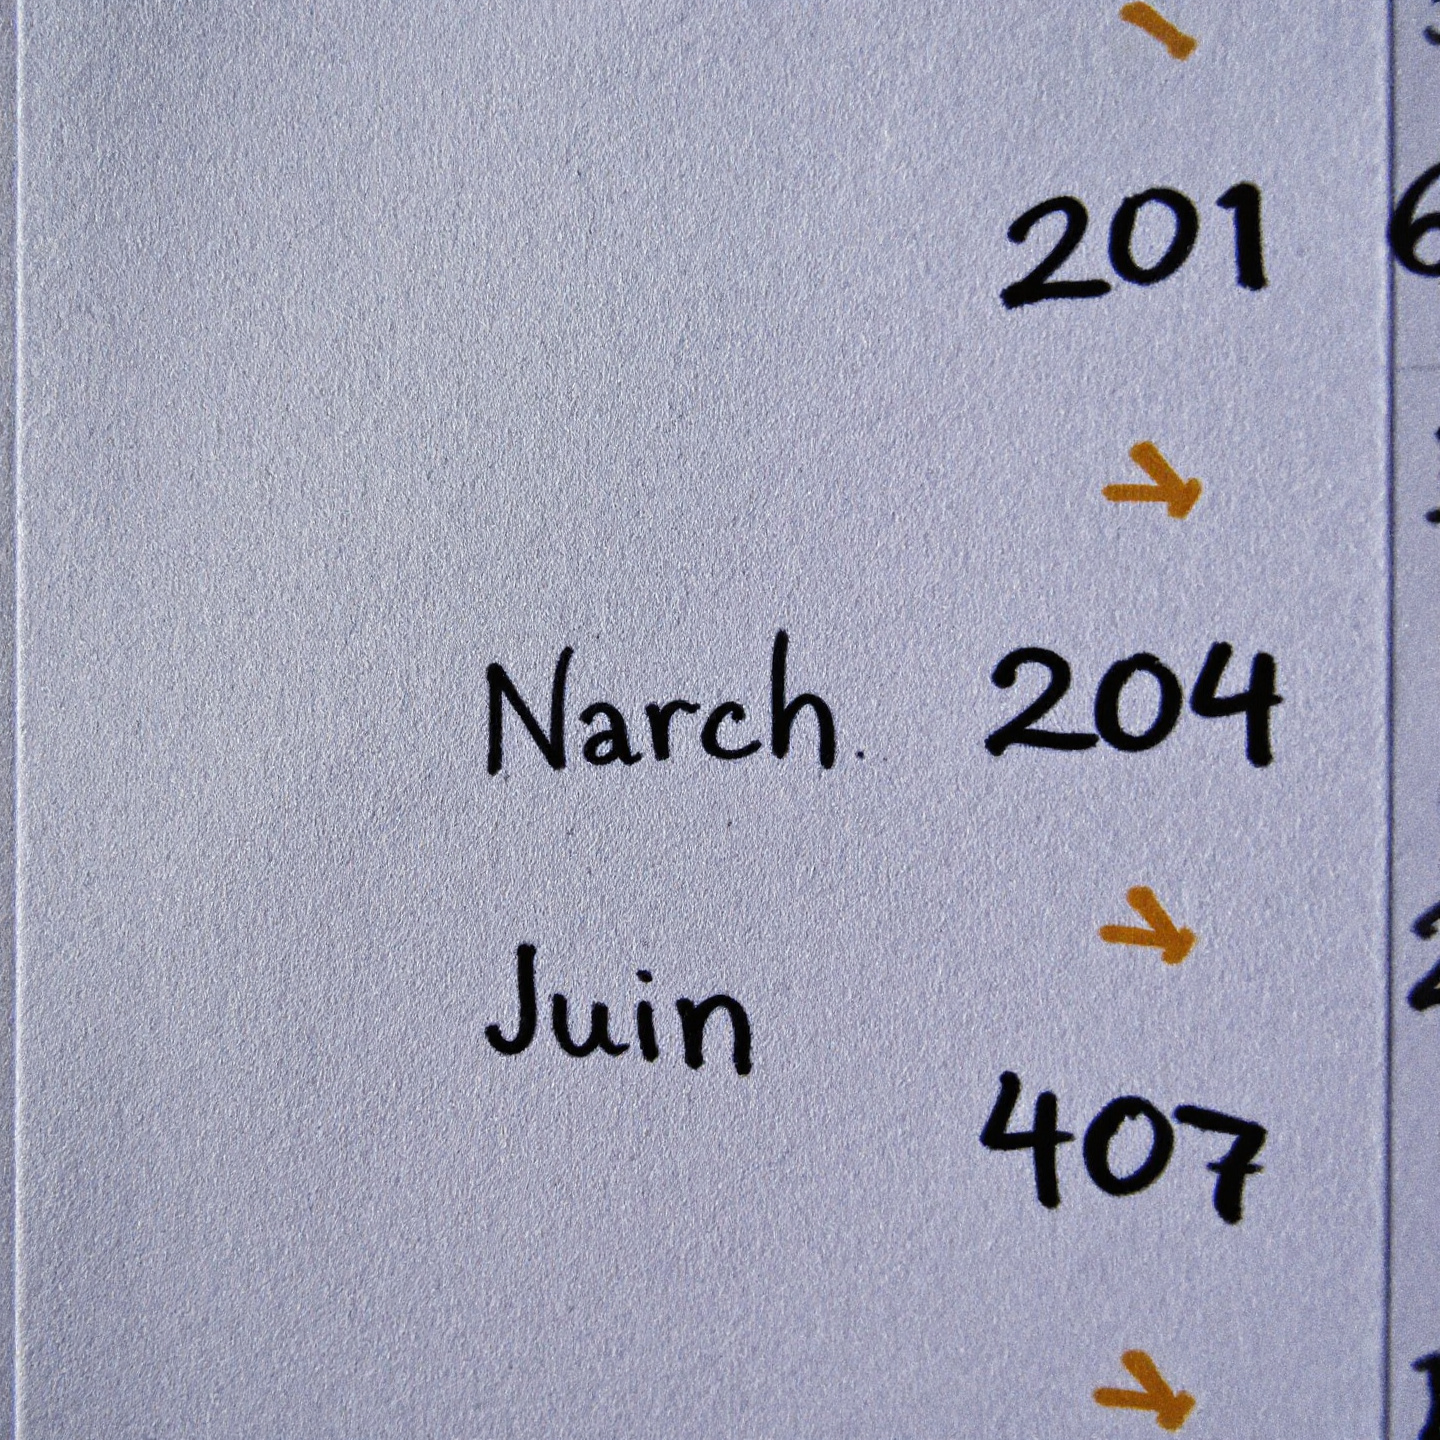 201
Narch. 204
Juin
407